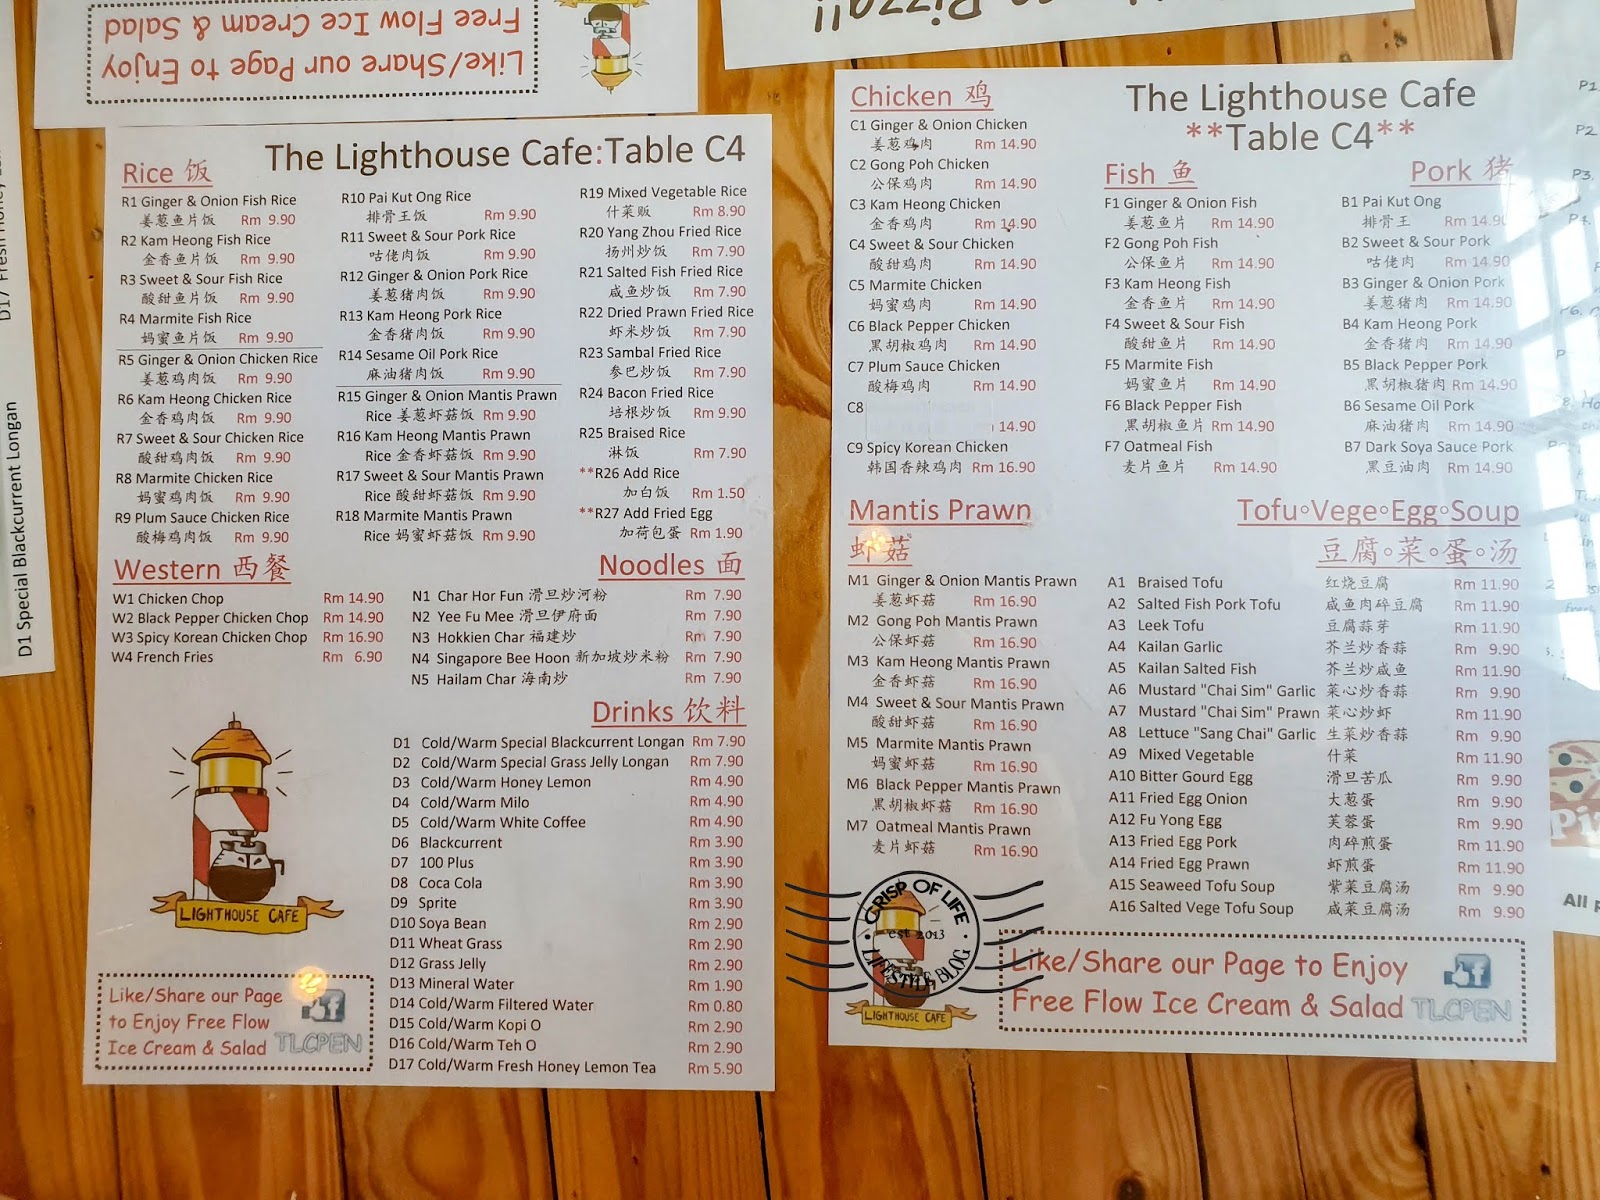 Like/Share our Page to Enjoy
Free Flow Ice Cream & Salad
Pizza!!
D1 Special Blackcurrent Longan
The Lighthouse Cafe:Table C4
Rice 饭
R1 Ginger & Onion Fish Rice
姜葱鱼片饭 Rm 9.90
R2 Kam Heong Fish Rice
金香鱼片饭 Rm 9.90
R3 Sweet & Sour Fish Rice
酸甜鱼片饭 Rm 9.90
R4 Marmite Fish Rice
妈蜜鱼片饭 Rm 9.90
R5 Ginger & Onion Chicken Rice
姜葱鸡肉饭 Rm 9.90
R6 Kam Heong Chicken Rice
金香鸡肉饭 Rm 9.90
R7 Sweet & Sour Chicken Rice
酸甜鸡肉饭 Rm 9.90
R8 Marmite Chicken Rice
妈蜜鸡肉饭 Rm 9.90
R9 Plum Sauce Chicken Rice
酸梅鸡肉饭 Rm 9.90
R10 Pai Kut Ong Rice
排骨王饭 Rm 9.90
R11 Sweet & Sour Pork Rice
咕佬肉饭 Rm 9.90
R12 Ginger & Onion Pork Rice
姜葱猪肉饭 Rm 9.90
R13 Kam Heong Pork Rice
金香猪肉饭 Rm 9.90
R14 Sesame Oil Pork Rice
麻油猪肉饭 Rm 9.90
R15 Ginger & Onion Mantis Prawn
Rice 姜葱虾菇饭 Rm 9.90
R16 Kam Heong Mantis Prawn
Rice 金香虾菇饭 Rm 9.90
R17 Sweet & Sour Mantis Prawn
Rice 酸甜虾菇饭 Rm 9.90
R18 Marmite Mantis Prawn
Rice 妈蜜虾菇饭 Rm 9.90
R19 Mixed Vegetable Rice
什菜贩 Rm 8.90
R20 Yang Zhou Fried Rice
扬州炒饭 Rm 7.90
R21 Salted Fish Fried Rice
咸鱼炒饭 Rm 7.90
R22 Dried Prawn Fried Rice
虾米炒饭 Rm 7.90
R23 Sambal Fried Rice
参巴炒饭 Rm 7.90
R24 Bacon Fried Rice
培根炒饭 Rm 9.90
R25 Braised Rice
淋饭 Rm 7.90
**R26 Add Rice
加白饭 Rm 1.50
**R27 Add Fried Egg
加荷包蛋 Rm 1.90
Western 西餐
W1 Chicken Chop Rm 14.90
W2 Black Pepper Chicken Chop Rm 14.90
W3 Spicy Korean Chicken Chop Rm 16.90
W4 French Fries Rm 6.90
Noodles 面
N1 Char Hor Fun 滑旦炒河粉 Rm 7.90
N2 Yee Fu Mee 滑旦伊府面 Rm 7.90
N3 Hokkien Char 福建炒 Rm 7.90
N4 Singapore Bee Hoon 新加坡炒米粉 Rm 7.90
N5 Hailam Char 海南炒 Rm 7.90
Drinks 饮料
D1 Cold/Warm Special Blackcurrent Longan Rm 7.90
D2 Cold/Warm Special Grass Jelly Longan Rm 7.90
D3 Cold/Warm Honey Lemon Rm 4.90
D4 Cold/Warm Milo Rm 4.90
D5 Cold/Warm White Coffee Rm 4.90
D6 Blackcurrent Rm 3.90
D7 100 Plus Rm 3.90
D8 Coca Cola Rm 3.90
D9 Sprite Rm 3.90
D10 Soya Bean Rm 2.90
D11 Wheat Grass Rm 2.90
D12 Grass Jelly Rm 2.90
D13 Mineral Water Rm 1.90
D14 Cold/Warm Filtered Water Rm 0.80
D15 Cold/Warm Kopi O Rm 2.90
D16 Cold/Warm Teh O Rm 2.90
D17 Cold/Warm Fresh Honey Lemon Tea Rm 5.90
LIGHTHOUSE CAFE
Like/Share our Page
to Enjoy Free Flow
Ice Cream & Salad
TLCPEN
The Lighthouse Cafe
**Table C4**
Chicken 鸡
C1 Ginger & Onion Chicken
姜葱鸡肉 Rm 14.90
C2 Gong Poh Chicken
公保鸡肉 Rm 14.90
C3 Kam Heong Chicken
金香鸡肉 Rm 14.90
C4 Sweet & Sour Chicken
酸甜鸡肉 Rm 14.90
C5 Marmite Chicken
妈蜜鸡肉 Rm 14.90
C6 Black Pepper Chicken
黑胡椒鸡肉 Rm 14.90
C7 Plum Sauce Chicken
酸梅鸡肉 Rm 14.90
C8
14.90
C9 Spicy Korean Chicken
韩国香辣鸡肉 Rm 16.90
Fish 鱼
F1 Ginger & Onion Fish
姜葱鱼片 Rm 14.90
F2 Gong Poh Fish
公保鱼片 Rm 14.90
F3 Kam Heong Fish
金香鱼片 Rm 14.90
F4 Sweet & Sour Fish
酸甜鱼片 Rm 14.90
F5 Marmite Fish
妈蜜鱼片 Rm 14.90
F6 Black Pepper Fish
黑胡椒鱼片 Rm 14.90
F7 Oatmeal Fish
麦片鱼片 Rm 14.90
Pork 猪
B1 Pai Kut Ong
排骨王 Rm 14.90
B2 Sweet & Sour Pork
咕佬肉 Rm 14.90
B3 Ginger & Onion Pork
姜葱猪肉 Rm 14.90
B4 Kam Heong Pork
金香猪肉 Rm 14.90
B5 Black Pepper Pork
黑胡椒猪肉 Rm 14.90
B6 Sesame Oil Pork
麻油猪肉 Rm 14.90
B7 Dark Soya Sauce Pork
黑豆油肉 Rm 14.90
Mantis Prawn
虾菇
M1 Ginger & Onion Mantis Prawn
姜葱虾菇 Rm 16.90
M2 Gong Poh Mantis Prawn
公保虾菇 Rm 16.90
M3 Kam Heong Mantis Prawn
金香虾菇 Rm 16.90
M4 Sweet & Sour Mantis Prawn
酸甜虾菇 Rm 16.90
M5 Marmite Mantis Prawn
妈蜜虾菇 Rm 16.90
M6 Black Pepper Mantis Prawn
黑胡椒虾菇 Rm 16.90
M7 Oatmeal Mantis Prawn
麦片虾菇 Rm 16.90
Tofu∘Vege∘Egg∘Soup
豆腐∘菜∘蛋∘汤
A1 Braised Tofu 红烧豆腐 Rm 11.90
A2 Salted Fish Pork Tofu 咸鱼肉碎豆腐 Rm 11.90
A3 Leek Tofu 豆腐蒜芽 Rm 11.90
A4 Kailan Garlic 芥兰炒香蒜 Rm 9.90
A5 Kailan Salted Fish 芥兰炒咸鱼 Rm 11.90
A6 Mustard "Chai Sim" Garlic 菜心炒香蒜 Rm 9.90
A7 Mustard "Chai Sim" Prawn 菜心炒虾 Rm 11.90
A8 Lettuce "Sang Chai" Garlic 生菜炒香蒜 Rm 9.90
A9 Mixed Vegetable 什菜 Rm 11.90
A10 Bitter Gourd Egg 滑旦苦瓜 Rm 9.90
A11 Fried Egg Onion 大葱蛋 Rm 9.90
A12 Fu Yong Egg 芙蓉蛋 Rm 9.90
A13 Fried Egg Pork 肉碎煎蛋 Rm 11.90
A14 Fried Egg Prawn 虾煎蛋 Rm 11.90
A15 Seaweed Tofu Soup 紫菜豆腐汤 Rm 9.90
A16 Salted Vege Tofu Soup 咸菜豆腐汤 Rm 9.90
CRISP OF LIFE
est 2013
LIFESTYLE BLOG
LIGHTHOUSE CAFE
Like/Share our Page to Enjoy
Free Flow Ice Cream & Salad
TLCPEN
P1
P2
P3.
All